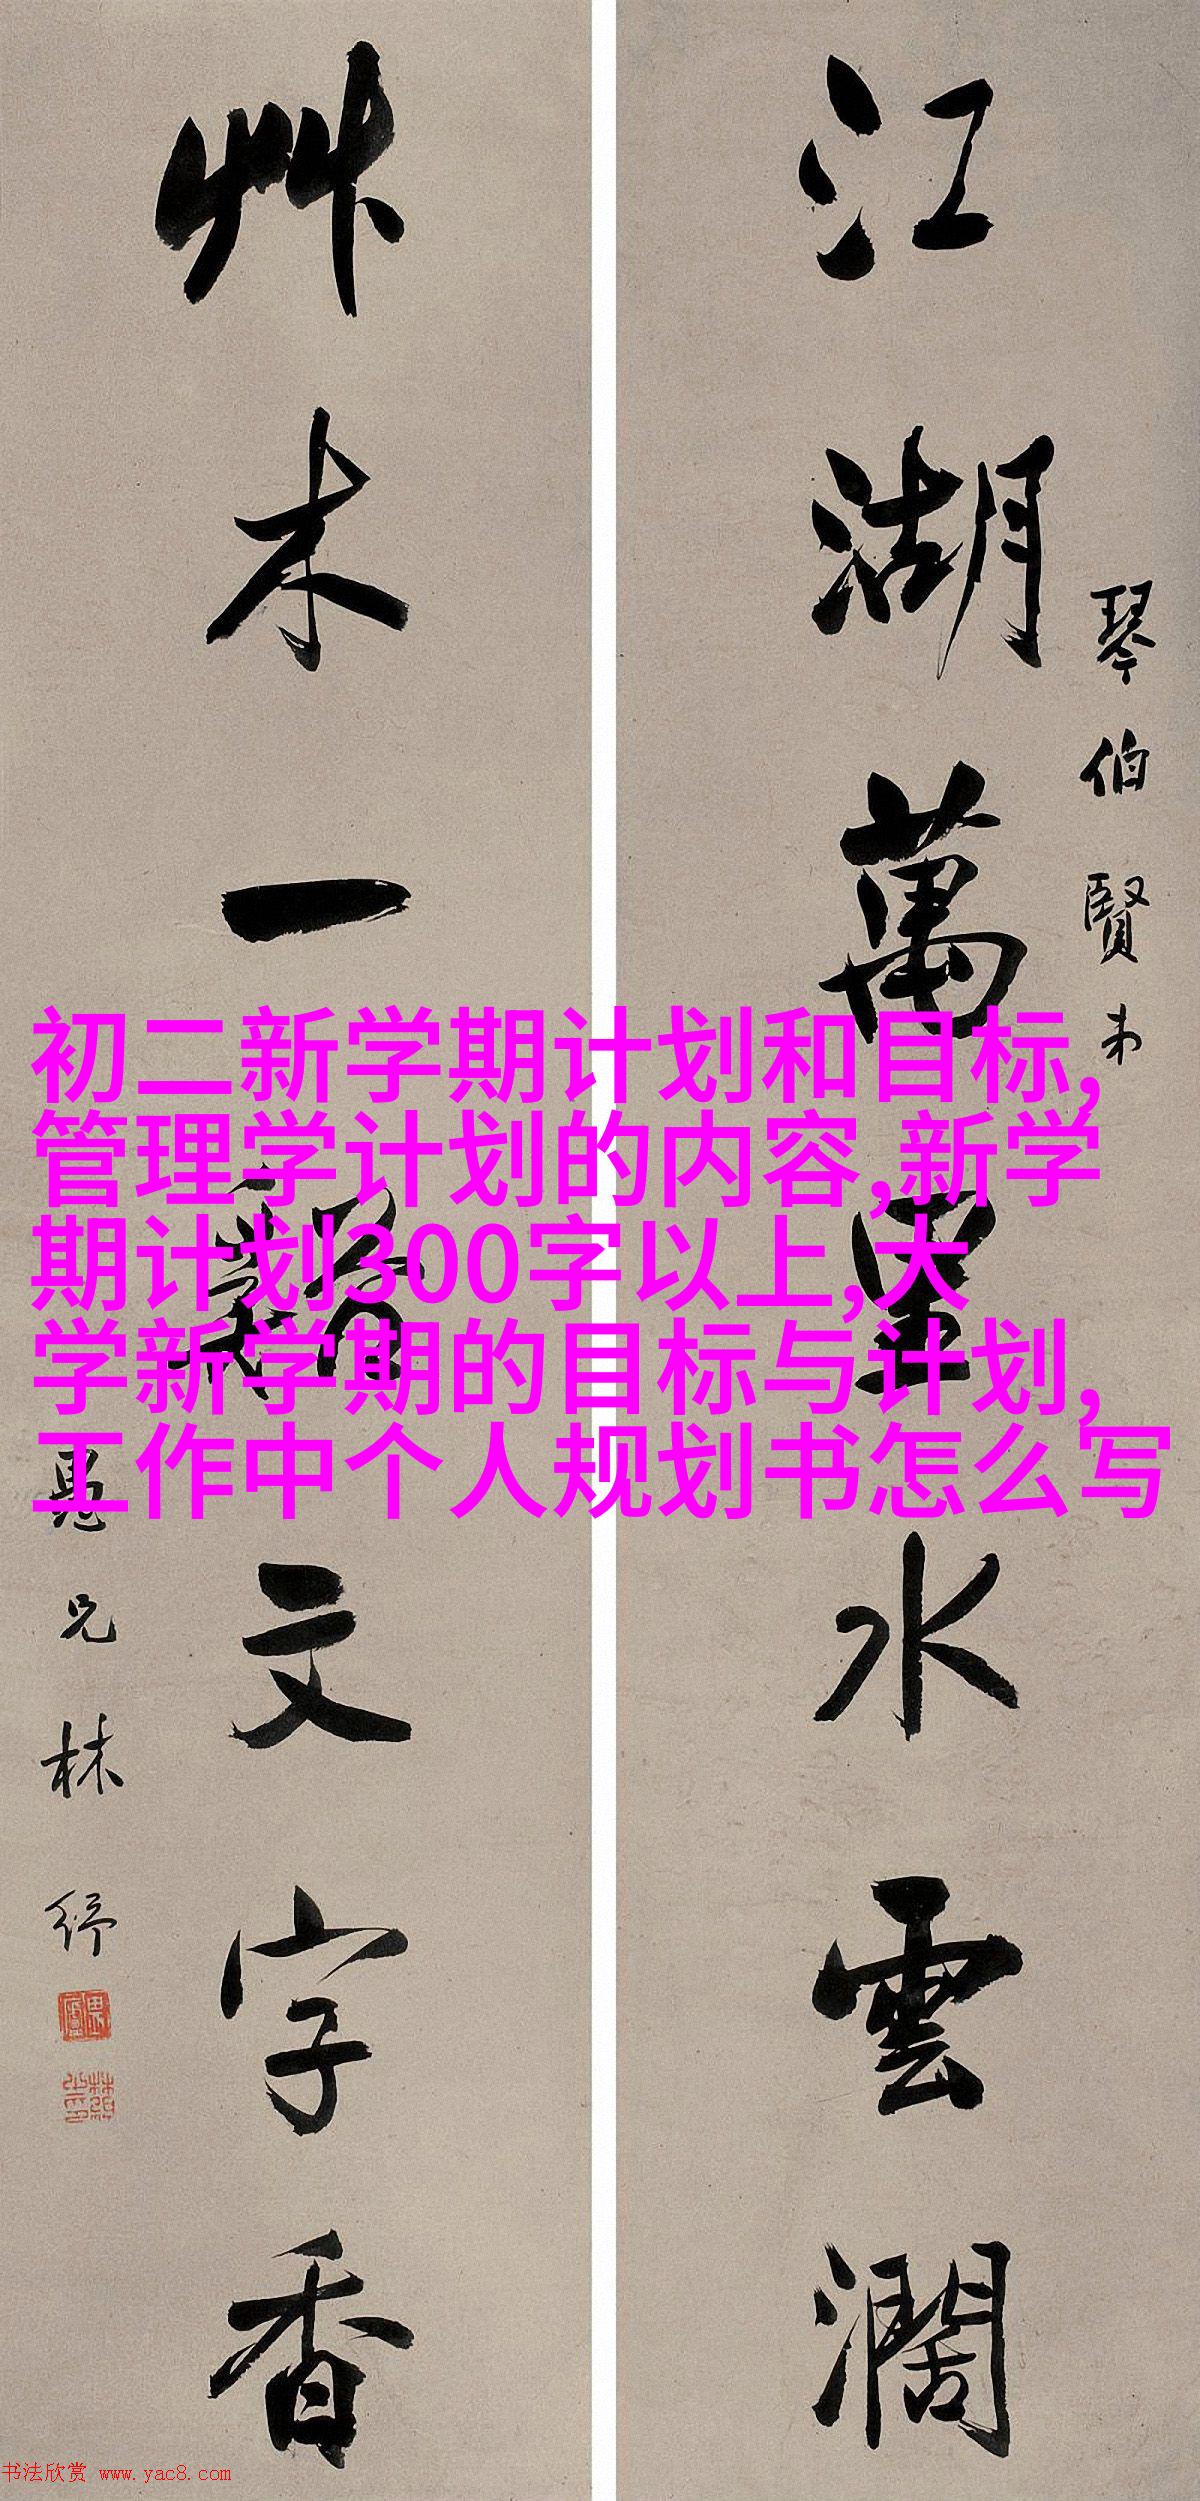 江湖萬里水雲濶
琴伯賢
艸木一谿文字香
愚兄林紓
初二新学期计划和目标,
管理学计划的内容,新学
期计划300字以上,大
学新学期的目标与计划,
工作中个人规划书怎么写
书法欣赏 www.yac8.com